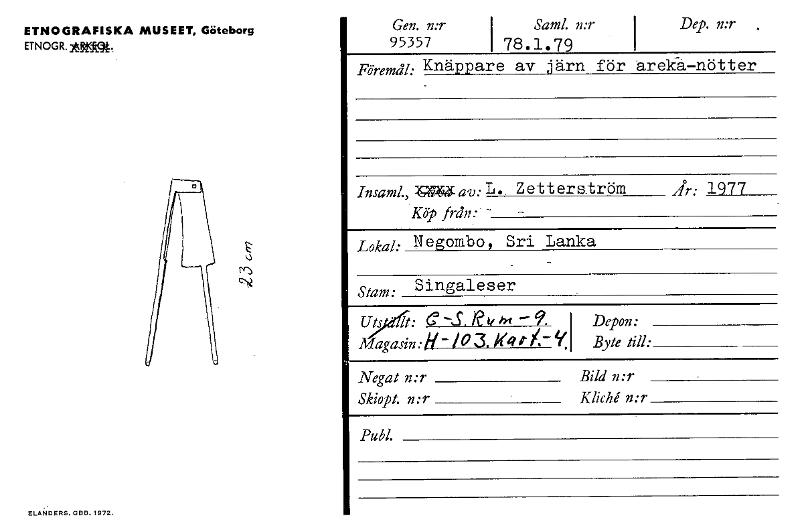 ETNOGRAFISKA MUSEET, Göteborg
ETNOGR. ARKEOL.
23 cm
ELANDERS, GBG. 1972.
Gen. n:r Saml. n:r Dep. n:r
95357 78.1.79
Föremål: Knäppare av järn för areka-nötter
Insaml., av: L. Zetterström År: 1977
Köp från: - -
Lokal: Negombo, Sri Lanka
Stam: Singaleser
Utställt: G-S.Rum-9. Depon:
Magasin: H-103.Kart.-4. Byte till:
Negat n:r Bild n:r
Skiopt. n:r Kliché n:r
Publ.